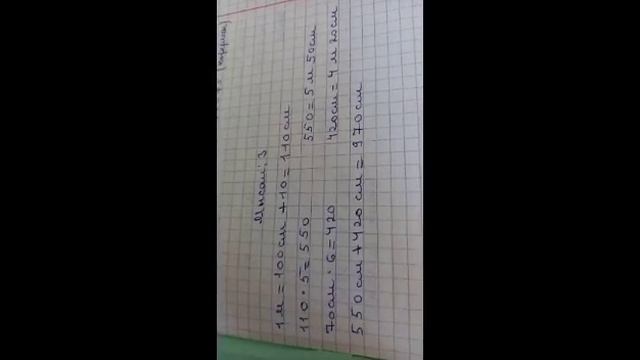 Мысал: 3
1м = 100см + 10 = 110см
110 · 5 = 550 550 = 5 м 50см
70см · 6 = 420 420см = 4 м 20см
550 см + 420 см = 970 см